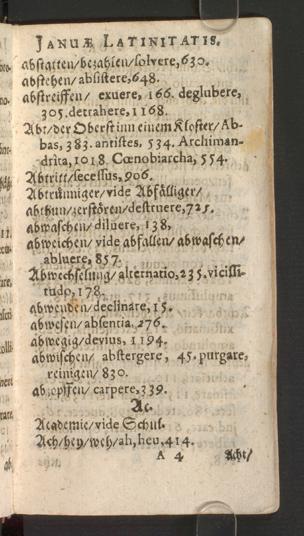 JANUÆ LATINITATIS.
abstatten/bezahlen/solvere,630.
abstehen/absistere,648.
abstreiffen/ exuere, 166. deglubere,
305.detrahere,1168.
Abt/der Oberst inn einem Kloster/Ab-
bas, 383. antistes, 534. Archiman-
drita,1018. Cœnobiarcha, 554.
Abtritt/secessus,906.
Abtrünniger/vide Abfälliger/
abthun/zerstören/destruere,725.
abwaschen/diluere, 138,
abweichen/ vide abfallen/abwaschen/
abluere, 857.
Abwechselung/alternatio,235.vicissi-
tudo,178.
abwenden/declinare,15.
abwesen/absentia,276.
abwegig/devius, 1194.
abwischen/ abstergere, 45. purgare,
reinigen/ 830.
abzopffen/ carpere,339.
Ac.
Academie/vide Schul.
Ach/hey/weh/ah,heu,414.
A 4 Acht/